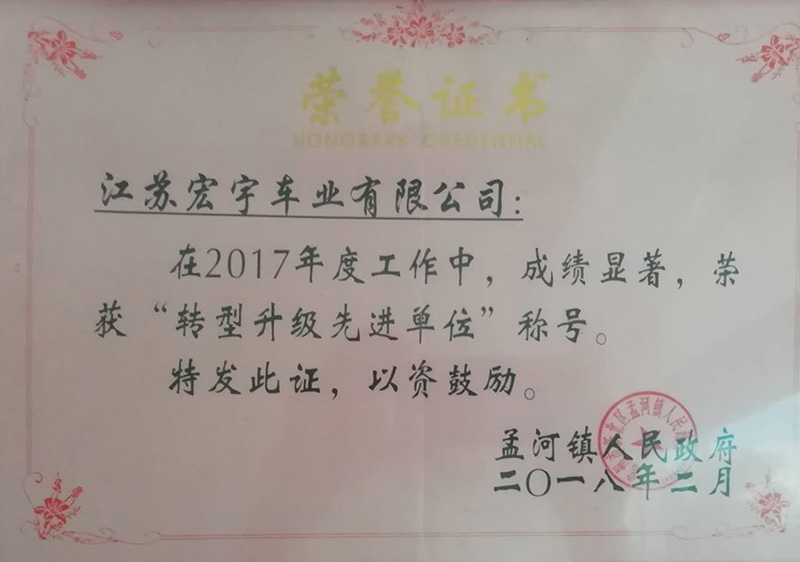 荣誉证书
HONORARY CREDENTIAL
江苏宏宇车业有限公司:
在2017年度工作中，成绩显著，荣
获“转型升级先进单位”称号。
特发此证，以资鼓励。
孟河镇人民政府
二〇一八年二月